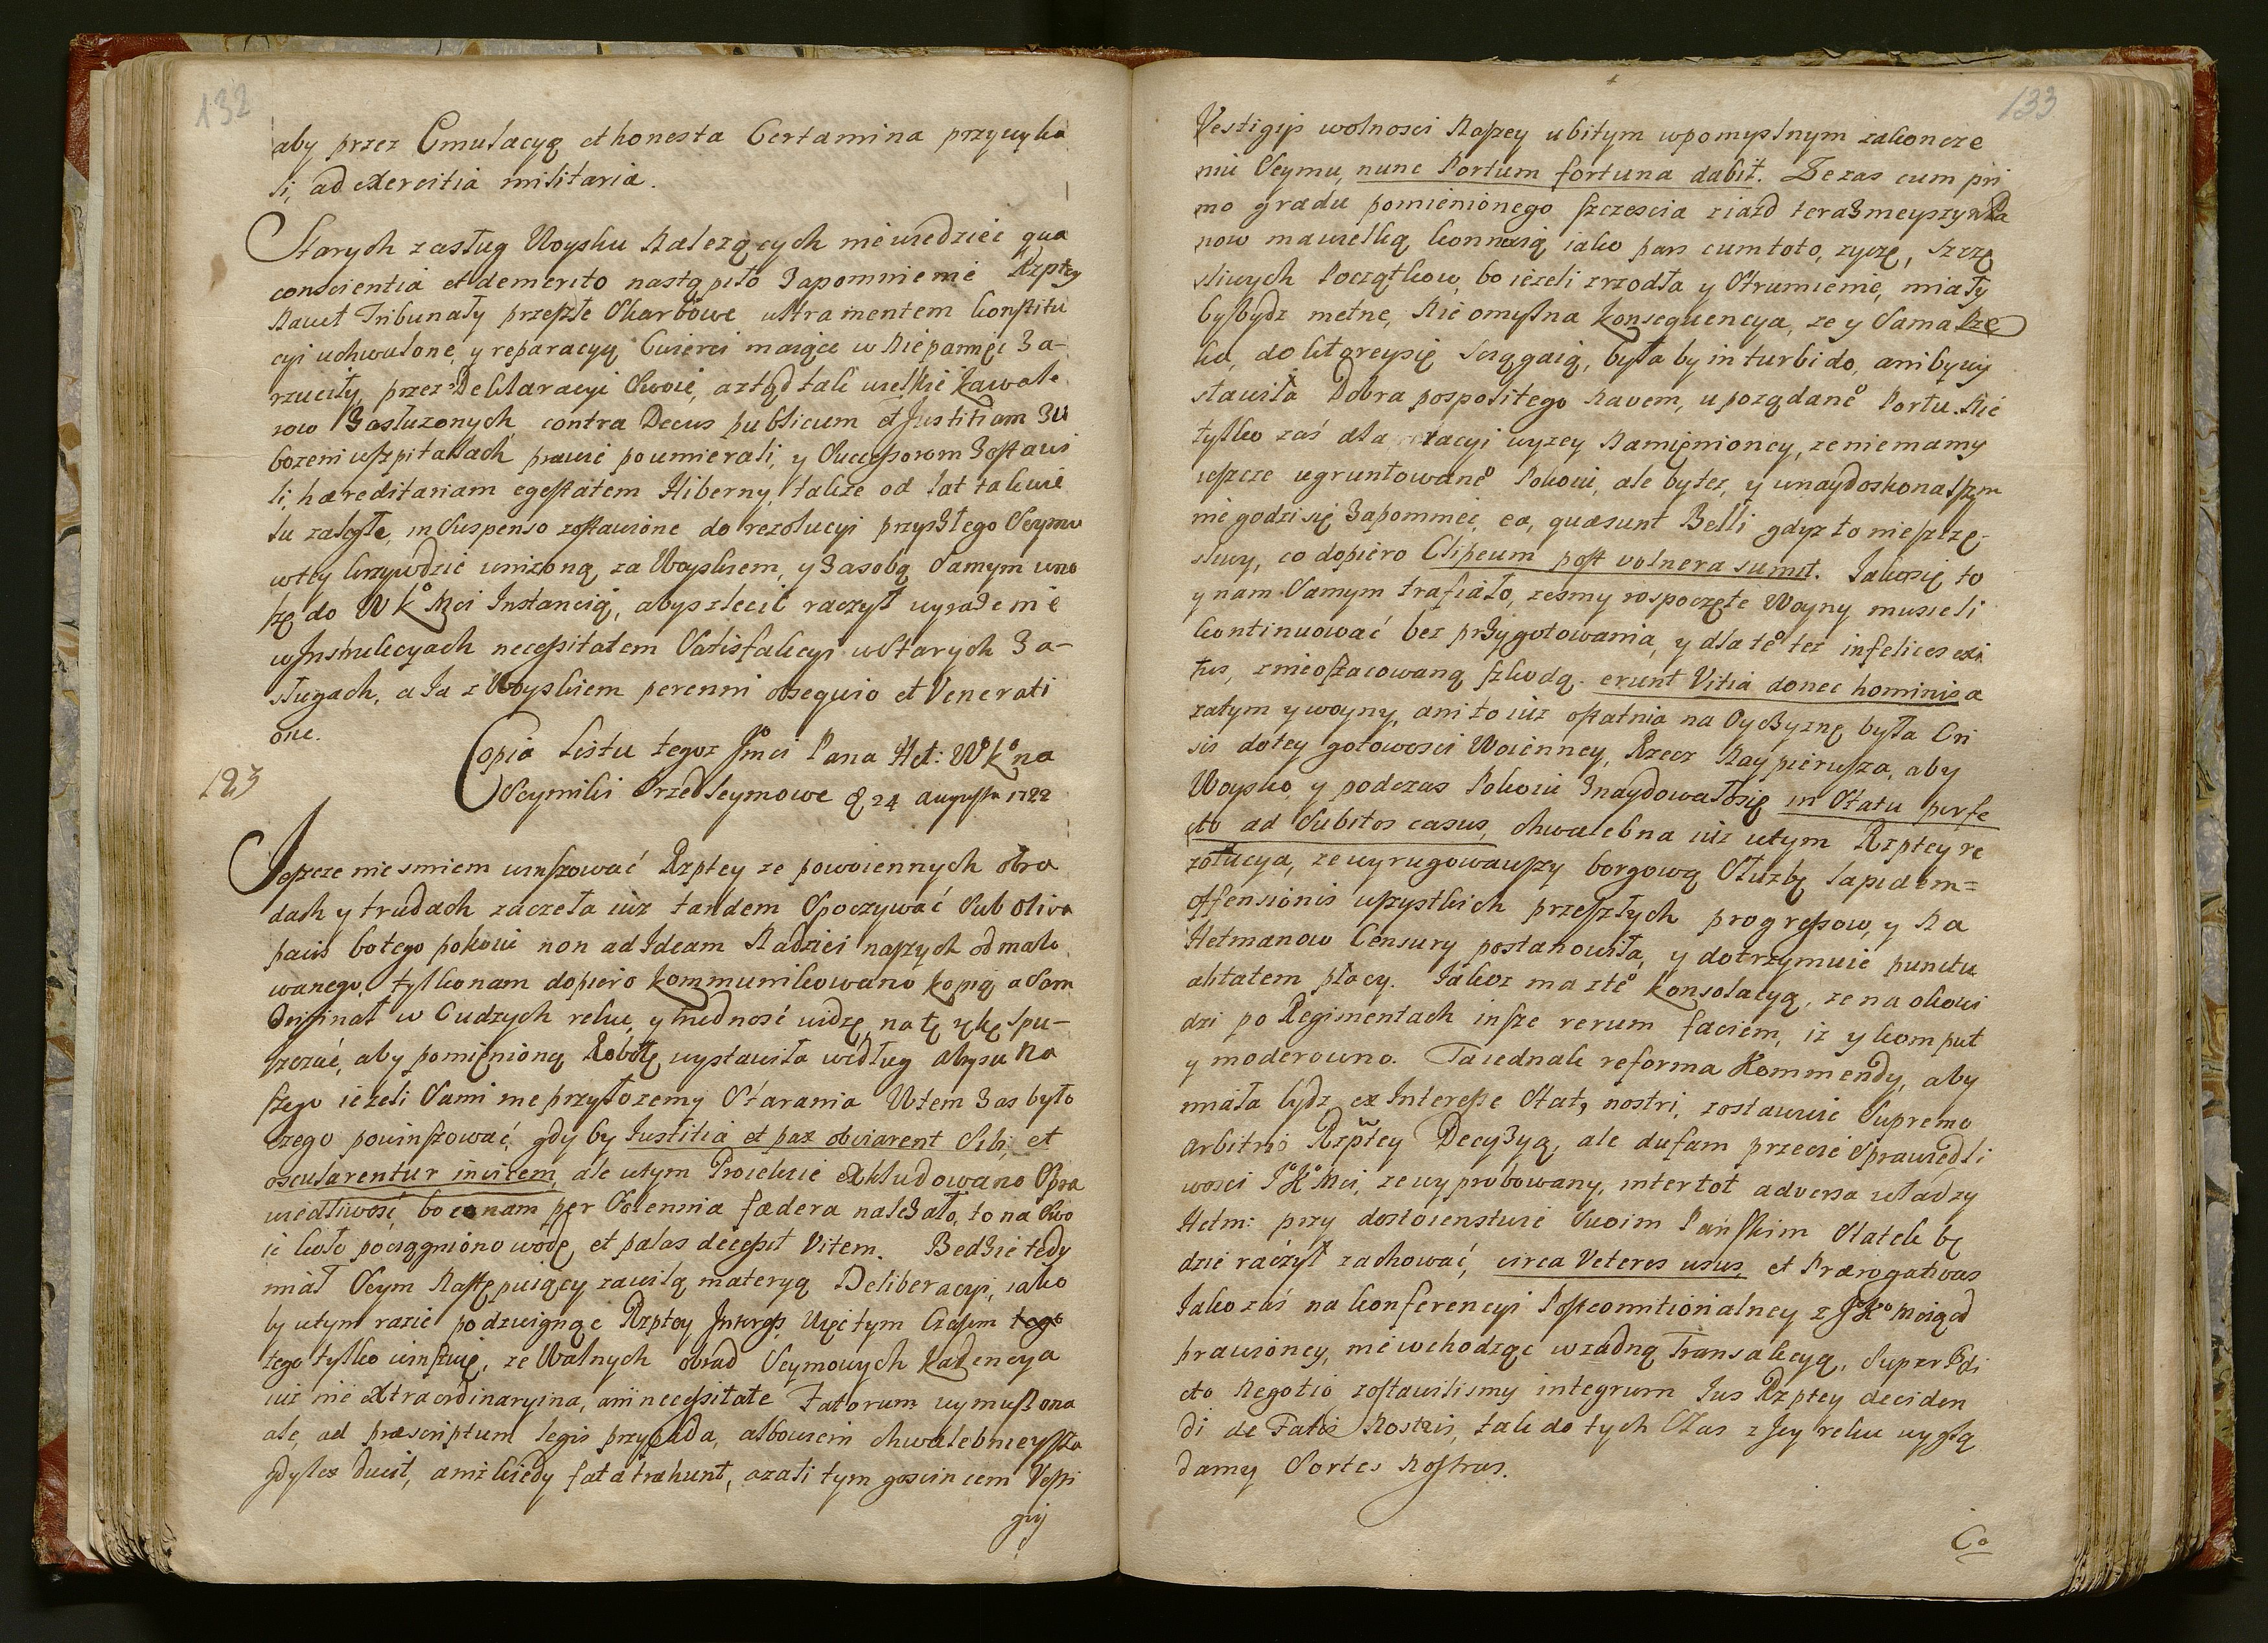 132
aby przez Emulacyą et honesta Certamina przywyka
li, ad exercitia militaria.
Starych zasług Woysku Nalezących niewiedzieć qua
conscientia et demerito nastąpiło Zapomnienie Rzptey
Nawet Tribunały przeszłe Skarbowe ultra mentem Konstitu
cyi uchwalone, y reparacyą Cwierci maiące w Niepamięć Za-
rzuciły, przez Deklaracyi Swoie, a ztąd tak wielkie Kawale
row Zasłuzonych contra Decus publicum et Justitiam Zu
bozeni w szpitallach prawie poumierali, y Successorom Zostawi
li, hæreditariam egestatem Hiberny, takze od lat takwie
lu zaległe, in Suspenso zostawione do rezolucyi przyszłego Seymu
w tey krzywdzie unizoną za Woyskiem, y Zasobą Samym wno
szę do W Ko Mci Instancią, abys zlecić raczył wyrazenie
w Instrukcyach necessitatem Satisfakcyi w Starych Za-
sługach, a Ja z Woyskiem perenni obsequio et Venerati
one.
Copia Listu tegoz Jmci Pana Het: W Ko na
Seymiki Przedseymowe d 24 Augusta 1722
123
Jeszcze niesmiem winszować Rzptey ze powoiennych obra
dach y trudach zaczeła iuz tandem Spoczywać Sub oliva
pacis bo tego pokoiu non ad Ideam Nadziei naszych odmalo
wanego, tylko nam dopiero kommunikowano kopią a Sam
Originał w Cudzych ręku, y trudność widzę, na tę rękę Spu-
szczać, aby pomięnioną Robotę wystawiła według abrysu Na
szego iezeli Sami nie przyłozemy Starania Wtem Zas było
czego powinszować, gdy by Iustitia et pax obviarent Sibi, et
oscularentur invicem, ale w tym Proiekcie exkludowano Spra
wiedliwość, bo co nam per Solennia fædera nalezało, to na Swo
ie koło pociągniono wodę, et palas decepit Vitem. Bedzie tedy
miał Seym Następuiący zawiłą materyą Deliberacyi, iako
by w tym razie podzwignąc Rzptey Interess Więc tym Czasem
tego tylko winszuię, ze Walnych obrad Seymowych Kadencya
iuz nie extraordinaryina, ani necessitate Fatorum wymuszona
ale, ad præscriptum legis przypada, albowiem chwalebnieysza
gdy lex ducit, aniz kiedy fata trahunt, azali tym goscincem Vesti
gij
133
Vestigijs wolnosci Naszey ubitym w pomyslnym zakoncze
niu Seymu, nunc Portum fortuna dabit. Zezas cum pri
mo gradu pomienionego szczescia ziazd terazmeyszy W Pa
now ma wielką konnexią iako pars cum toto, zyczę, Szczę
sliwych Początkow, bo iezeli zrzodła y Strumienie, miały
by bydz metne, Nie omylna konsequencya, ze y Sama Rze
ka, do ktoreysię sciągaią, była by in turbido, ani by wy
stawiła Dobra pospolitego Navem, u poządaneo Portu. Nie
tylko zaś dla racyi wyzey Namięnioney, ze niemamy
ieszcze ugruntowaneo Pokoiu, ale by tez, y w naydoskonalszym
nie godzi się Zapomniec, ea, quæ sunt Belli gdyz to nieszczę-
sliwy, co dopiero Clipeum post volnera sumit. Jako się to
y nam Samym trafiało, zesmy rospoczęte Woyny, musieli
kontinuować bez przygotowania, y dla teo tez infelices exi
tus, z nieoszacowaną szkodą. erunt Vitia donec homines a
zatym y woyny, ani to iuz ostatnia na Oyczyznę była Cri
sis do tey gotowosci Woienney, Rzecz Naypierwsza, aby
Woysko, y podczas Pokoiu Znaydowało się in Statu perfe
cto ad Subitos casus, chwalebna iuz w tym Rzptey re
zolucya, ze wyrugowawszy borgową Służbę lapidem=
offensionis wszystkich przeszłych progressow, y Na
Hetmanow Censury postanowiła, y dotrzymuie punctu
alitatem płacy. Jakoz ma z teo konsolacyą, ze na okowi
dzi po Regimentach insze rerum faciem, iz y komput
y moderowno. Ta iednak reforma Kommendy, aby
miała bydz ex Interesse Status nostri, zostawuie Supremo
arbitrio Rzptey Decyzyą, ale dufam przecie Sprawiedli
wosci JK Mci, ze wyprobowany, inter tot adversa władzy
Hetm: przy dostoienstwie Swoim Pańskim Statek bę
dzie raczył zachować, circa Veteres usus, et Prærogativas
Jako zaś na konferencyi Postcomitionalney z JKo Mcią od
prawioney, niewchodząc w zadną Transakcyą, Super Prædi
cto Negotio zostawilismy integrum Ius Rzptey deciden
di de Fatis Nostris, tak do tych Czas z Jey ręku wyglą
damy Sortes Nostras.
Co